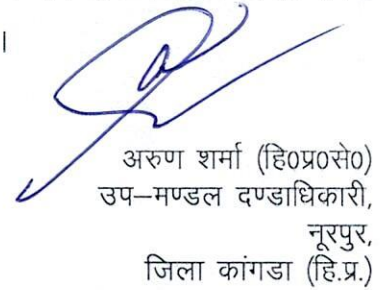 ।
अरुण शर्मा (हि0प्र0से0)
उप–मण्डल दण्डाधिकारी,
नूरपुर,
जिला कांगडा (हि.प्र.)